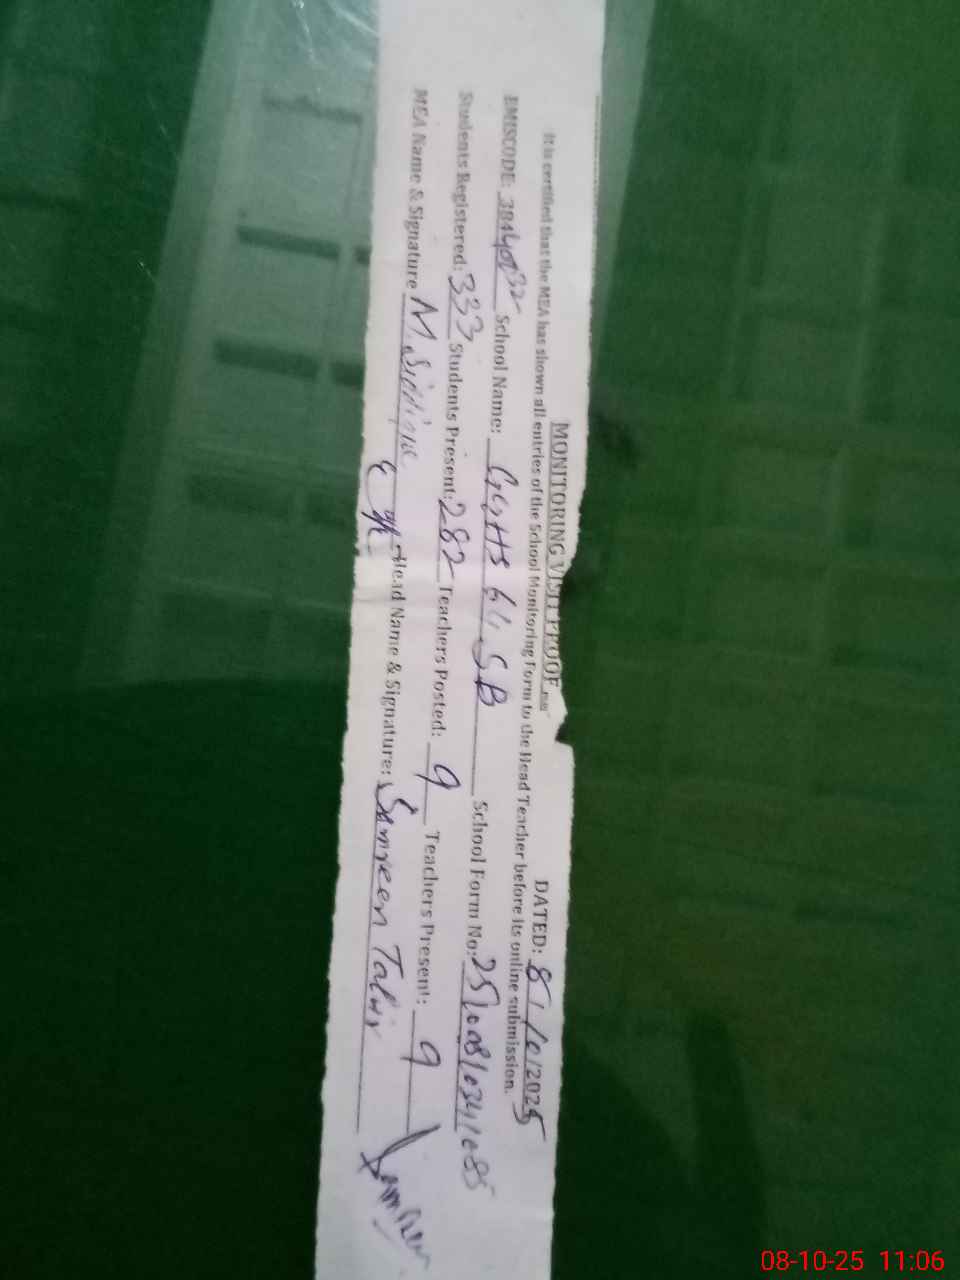 MONITORING VISIT PROOF
DATED: 8/10/2025
It is certified that the MEA has shown all entries of the School Monitoring Form to the Head Teacher before its online submission.
EMISCODE: School Name: GGHS 64 SB School Form No:
Students Registered: 333 Students Present: 282 Teachers Posted: 9 Teachers Present: 9
MEA Name & Signature M. Siddique Head Name & Signature: Samreen Tahir
08-10-25 11:06